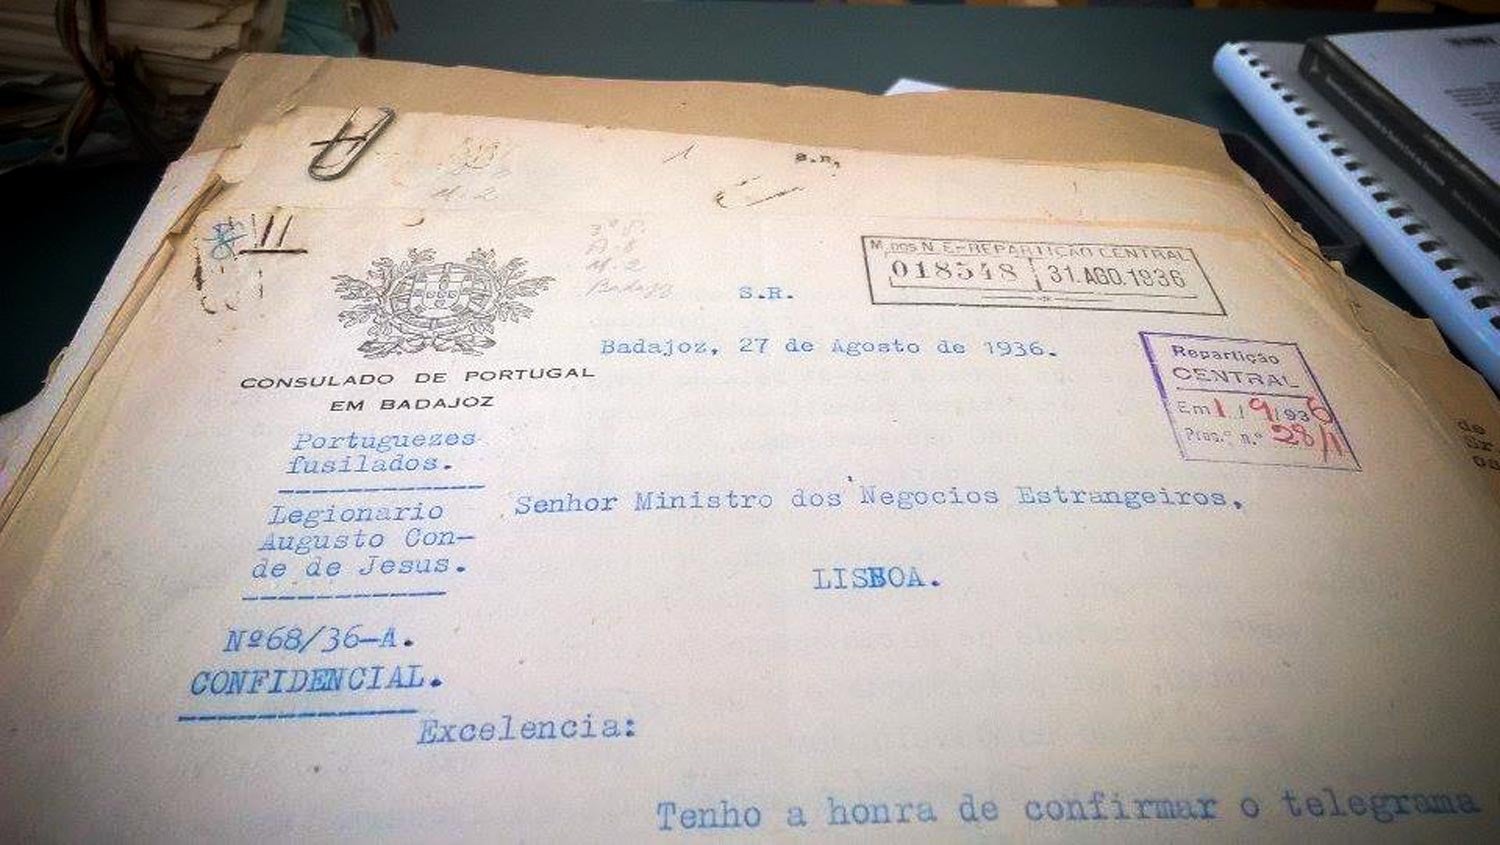 1
S.R.
11
M. DOS N. E.-REPARTIÇÃO CENTRAL
018548 31 AGO. 1936
S.R.
Badajoz, 27 de Agosto de 1936.
Repartição
CENTRAL
Em 1 / 9 / 1936
Proc.º n.º 28/1
CONSULADO DE PORTUGAL
EM BADAJOZ
Portuguezes
fusilados.
Legionario
Augusto Con-
de de Jesus.
Nº68/36-A.
CONFIDENCIAL.
Senhor Ministro dos Negocios Estrangeiros,
LISBOA.
Excelencia:
Tenho a honra de confirmar o telegrama